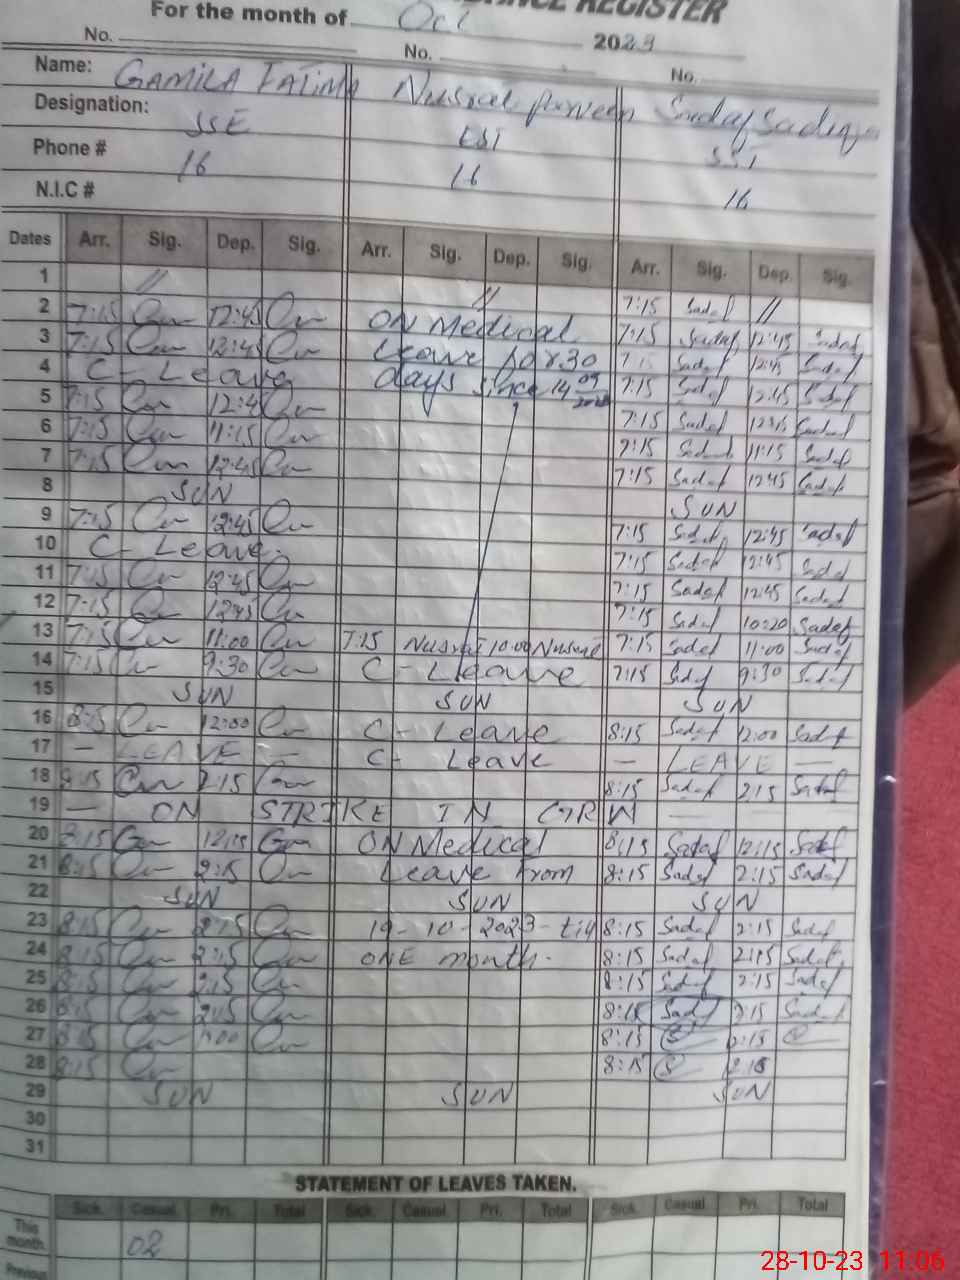 ANCE REGISTER
For the month of Oct 2023
No. No. No.
Name: GAMILA FATIMA Nusrat Parveen Sadaf Sadiqa
Designation: SSE EST SST
Phone # 16 16 16
N.I.C #
Dates Arr. Sig. Dep. Sig. Arr. Sig. Dep. Sig. Arr. Sig. Dep. Sig.
1 // // 7:15 Sadaf //
2 7:15 12:45 ON Medical 7:15 Sadaf 12:45 Sadaf
3 7:15 12:45 Leave for 30 Sadaf 12:45 Sadaf
4 C- Leave days since 14 09 7:15 Sadaf 12:45 Sadaf
5 7:15 12:4 7:15 Sadaf Sadaf
6 7:15 11:15 Sadaf 11:15 Sadaf
7 7:15 12:45 7:15 Sadaf 12:45 Sadaf
8 SUN SUN
9 7:15 12:45 7:15 Sadaf 12:45 Sadaf
10 C- Leave. 7:15 Sadaf 12:45 Sadaf
11 7:15 12:45 7:15 Sadaf 12:45 Sadaf
12 7:15 12:45 7:15 Sadaf 10:20 Sadaf
13 7:15 11:00 7:15 Nusrat 10:00 Nusrat 7:15 Sadaf 11:00 Sadaf
14 7:15 9:30 C- Leave 7:15 Sadaf 9:30 Sadaf
15 SUN SUN SUN
16 8:15 12:00 C- Leave 8:15 Sadaf 12:00 Sadaf
17 — LEAVE — C- Leave — LEAVE —
18 8:15 2:15 8:15 Sadaf 2:15 Sadaf
19 — ON STRIKE IN GRW
20 8:15 12:15 ON Medical 8:15 Sadaf 12:15 Sadaf
21 8:15 2:15 Leave From 8:15 Sadaf 2:15 Sadaf
22 SUN SUN SUN
23 8:15 2:15 19-10-2023-till 8:15 Sadaf 2:15 Sadaf
24 8:15 2:15 ONE month. 8:15 Sadaf 2:15 Sadaf
25 8:15 2:15 8:15 Sadaf 2:15 Sadaf
26 8:15 2:15 8:15 Sadaf 2:15 Sadaf
27 8:15 8:15 2:15
28 8:15 8:15 2:15
29 SUN SUN SUN
30
31
STATEMENT OF LEAVES TAKEN.
Sick. Casual Pri. Total Sick. Casual Pri. Total Sick. Casual Pri. Total
This month. 02
Previous
28-10-23 11:06